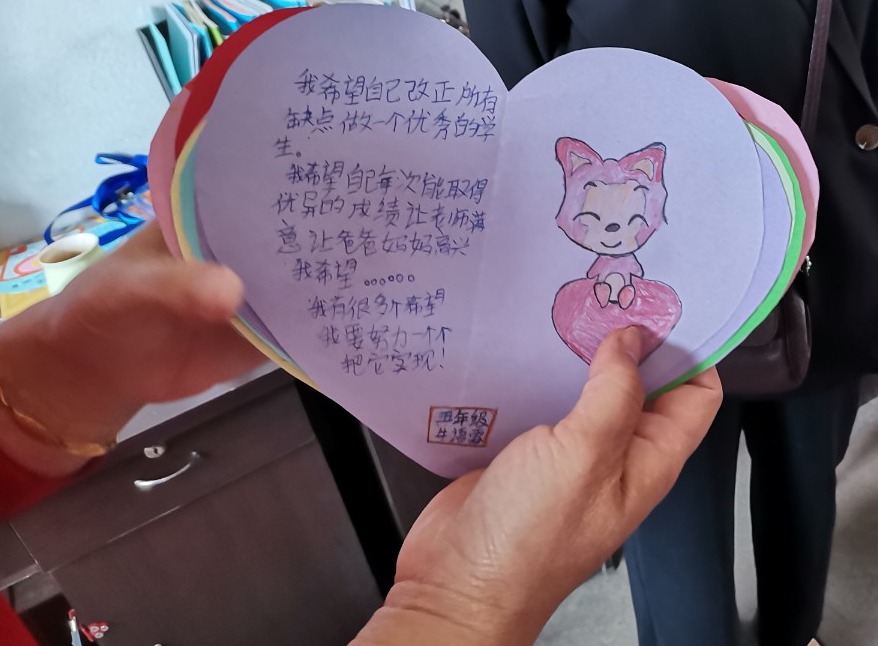 我希望自己改正所有
缺点做一个优秀的学
生。
我希望自己每次能取得
优异的成绩让老师满
意让爸爸妈妈高兴
我希望……
我有很多个希望
我要努力一个个
把它实现!
四年级
牛